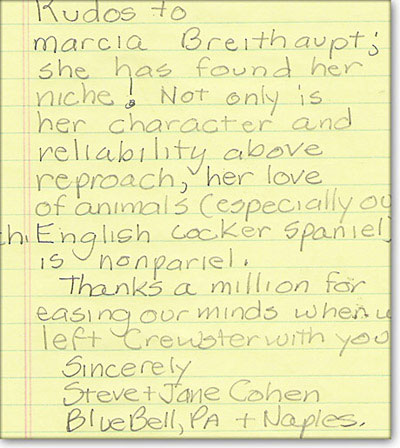 Kudos to
marcia Breithaupt;
she has found her
niche! Not only is
her character and
reliability above
reproach, her love
of animals (especially ou
th English cocker spaniel)
is nonpariel.
Thanks a million for
easing our minds when w
left Crewster with you
Sincerely
Steve + Jane Cohen
Blue Bell, PA + Naples.